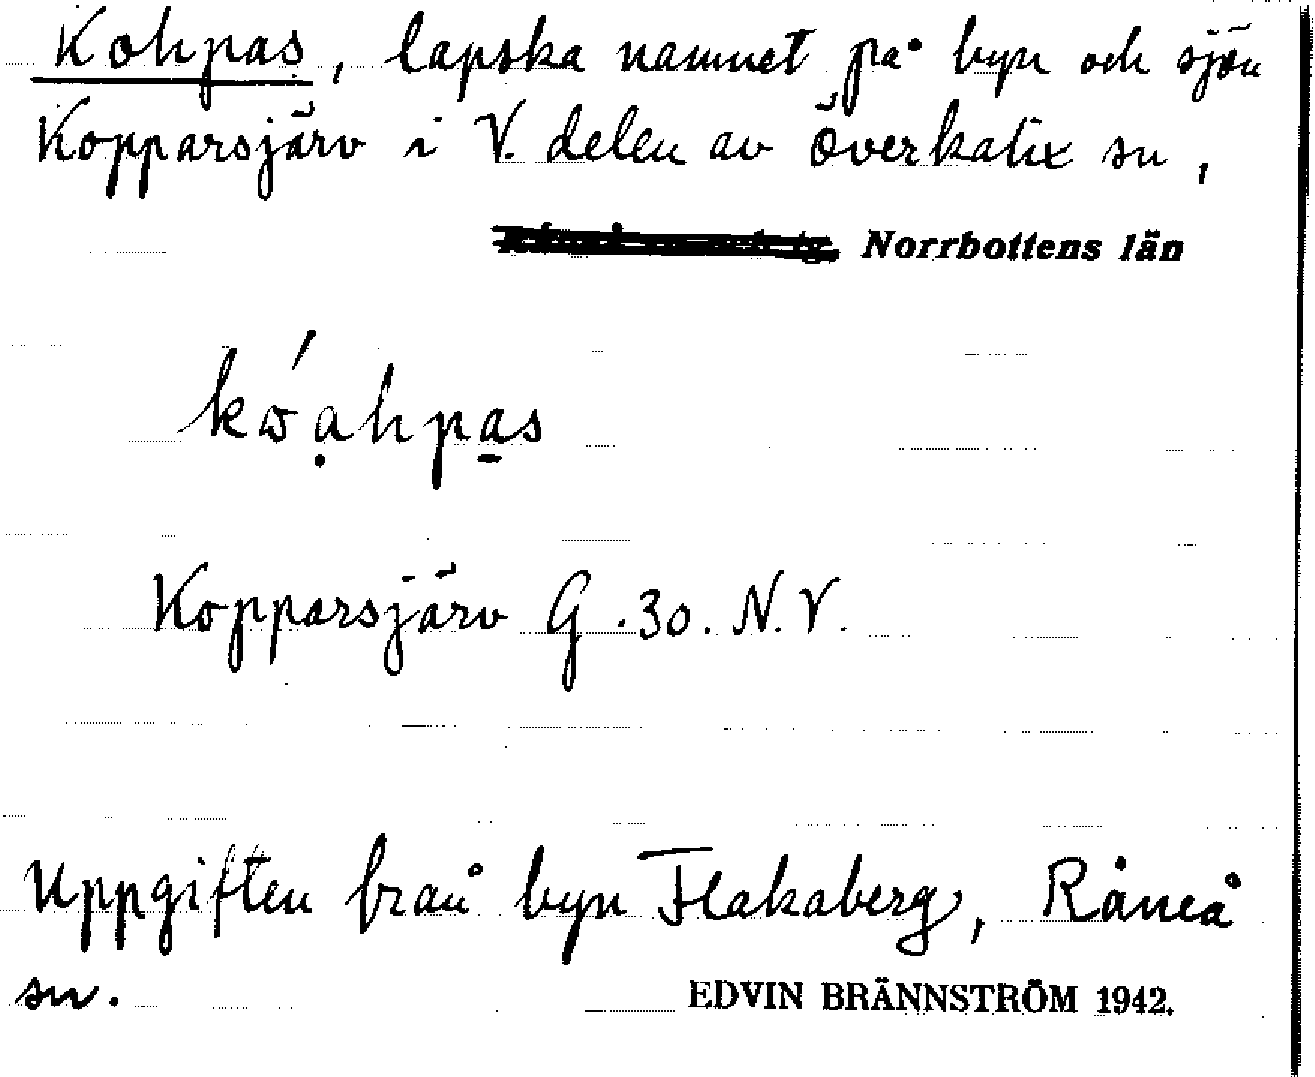 Kohpas, lapska namnet på byn och sjön
Kopparsjärv i V. delen av Överkalix sn,
Norrbottens län
kɷ́ạhpa̱s
Kopparsjärv G. 30. N.V.
Uppgiften från byn Flakaberg, Råneå
sn.
EDVIN BRÄNNSTRÖM 1942.